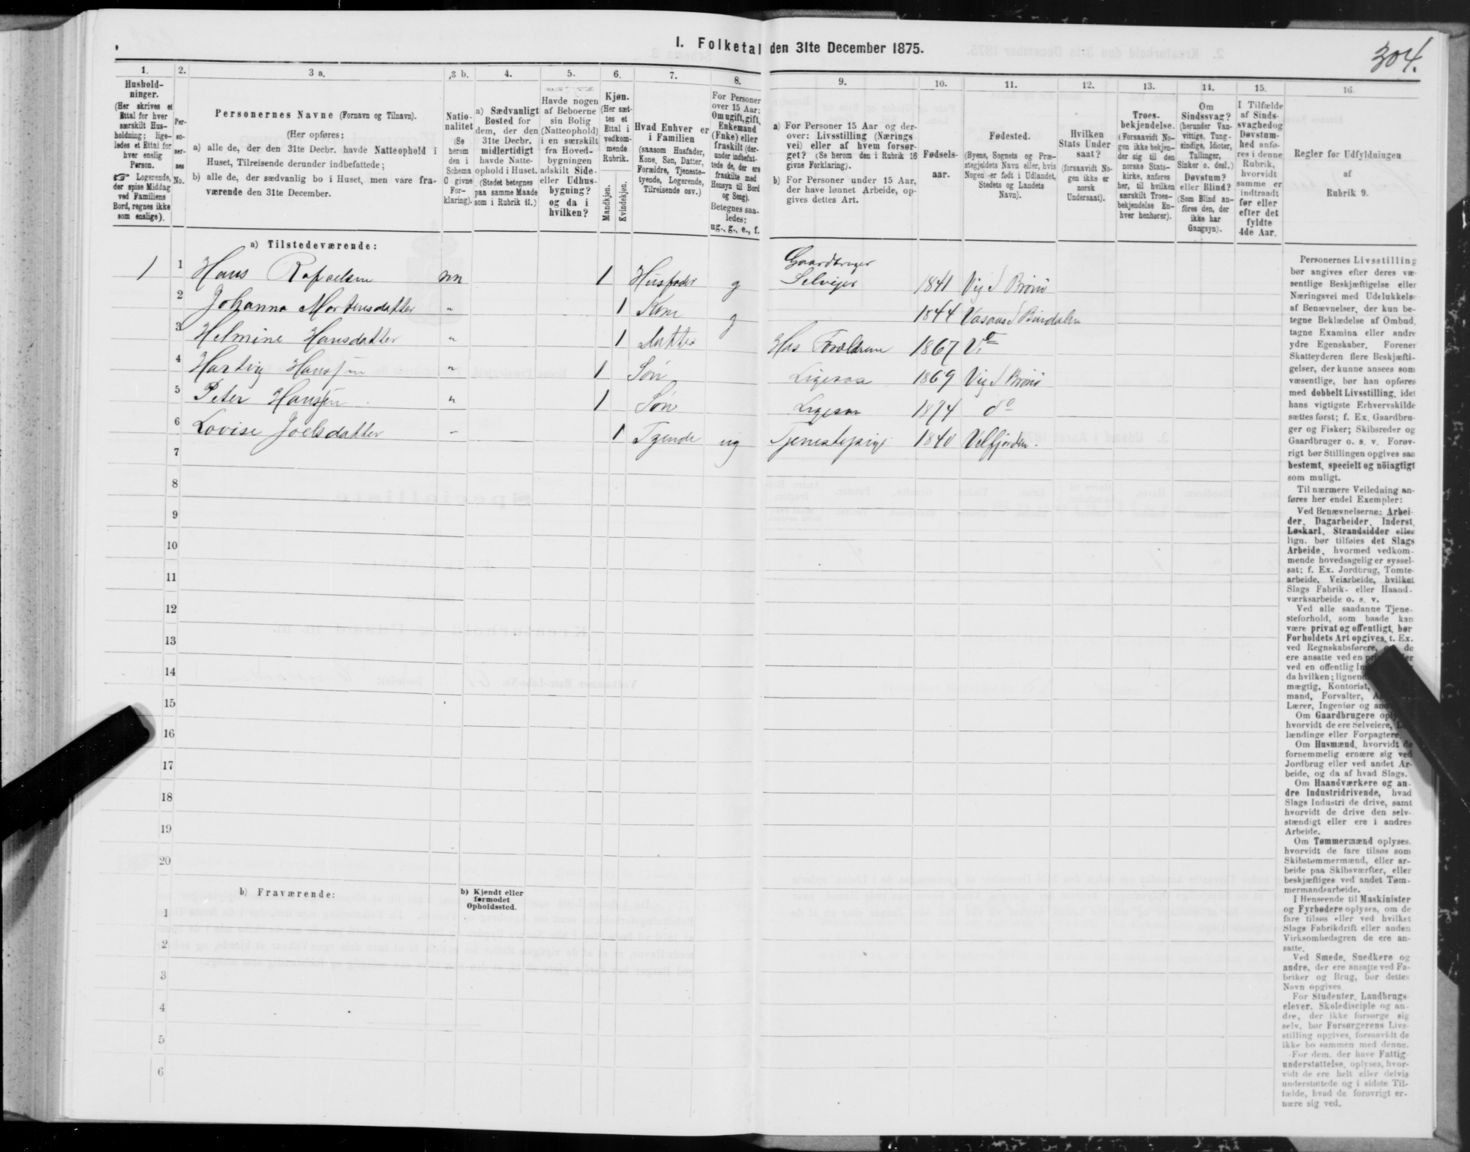 304.
I. Folketal den 31te December 1875.
1.
Hushold-
ninger.
(Her skrives et
Ettal for hver
særskilt Hus-
holdning; lige-
ledes et Ettal for
hver enslig
Person.
Logerende,
der spise Middag
ved Familiens
Bord, regnes ikke
som enslige).
2.
Per-
so-
ner-
nes
No.
3 a.
Personernes Navne (Fornavn og Tilnavn).
(Her opføres:
a) alle de, der den 31te Decbr. havde Natteophold i
Huset, Tilreisende derunder indbefattede;
b) alle de, der sædvanlig bo i Huset, men vare fra-
værende den 31te December.
3 b.
Natio-
nalitet
(Se
herom
den i
Schema
O givne
For-
klaring).
4.
a) Sædvanligt
Bosted for
dem, der den
31te Decbr.
midlertidigt
havde Natte-
ophold i Huset.
(Stedet betegnes
paa samme Maade
som i Rubrik 11.)
5.
Havde nogen
af Beboerne
sin Bolig
(Natteophold)
i en særskilt
fra Hoved-
bygningen
adskilt Side-
eller Udhus-
bygning?
og da i
hvilken?
6.
Kjøn.
(Her sæt-
tes et
Ettal i
vedkom-
mende
Rubrik.
Mandkjøn.
Kvindekjøn.
7.
Hvad Enhver er
i Familien
(saasom Husfader,
Kone, Søn, Datter,
Forældre, Tjeneste-
tyende, Logerende,
Tilreisende osv.)
8.
For Personer
over 15 Aar:
Om ugift, gift,
Enkemand
(Enke) eller
fraskilt (der-
under indbefat-
tede de, der ere
fraskilte med
Hensyn til Bord
og Seng).
Betegnes saa-
ledes:
ug., g., e., f.
9.
a) For Personer 15 Aar og der-
over: Livsstilling (Nærings
vei) eller af hvem forsør-
get? (Se herom den i Rubrik 16
givne Forklaring).
b) For Personer under 15 Aar,
der have lønnet Arbeide, op-
gives dettes Art.
10.
Fødsels-
aar.
11.
Fødested.
(Byens, Sognets og Præ-
stegjeldets Navn eller, hvis
Nogen er født i Udlandet,
Stedets og Landets
Navn).
12.
Hvilken
Stats Under
saat?
(forsaavidt No-
gen ikke er
norsk
Undersaat).
13.
Troes-
bekjendelse.
(Forsaavidt No-
gen ikke bekjen-
der sig til den
norske Stats-
kirke, anføres
her, til hvilken
særskilt Troes-
bekjendelse En-
hver henhører).
14.
Om
Sindssvag?
(herunder Van-
vittige, Tung-
sindige, Idioter,
Tullinger,
Sinker o. desl.)
Døvstum?
eller Blind?
(Som Blind an-
føres den, der
ikke har
Gangsyn).
15.
I Tilfælde
af Sinds-
svaghed og
Døvstum-
hed anfø-
res i denne
Rubrik,
hvorvidt
samme er
indtraadt
før eller
efter det
fyldte
4de Aar.
16.
Regler for Udfyldningen
af
Rubrik 9.
a) Tilstedeværende:
1 1 Hans Rafaelsen nn 1 Husfader g Gaardbruger Selveier 1841 Vig S Brønø
2 Johanna Mortensdatter " 1 Kone g 1844 Vasaas S Bindalen
3 Helmine Hansdatter " 1 Datter Hos Forældrene 1867
4 Hartvig Hanssen " 1 Søn Ligesaa 1869 Vig S Brønø
5 Peter Hanssen " 1 Søn Ligesaa 1874 do
6 Lovise Joelsdatter " 1 Tyende ug Tjenestepige 1840 Velfjorden.
7
8
9
10
11
12
13
14
15
16
17
18
19
20
b) Fraværende:
b) Kjendt eller
formodet
Opholdssted.
1
2
3
4
5
6
Personernes Livsstilling
bør angives efter deres væ-
sentlige Beskjæftigelse eller
Næringsvei med Udelukkelse
af Benævnelser, der kun be-
tegne Beklædelse af Ombud,
tagne Examina eller andre
ydre Egenskaber. Forener
Skatteyderen flere Beskjæfti-
gelser, der kunne ansees som
væsentlige, bør han opføres
med dobbelt Livsstilling, idet
hans vigtigste Erhvervskilde
sættes først; f. Ex. Gaardbru-
ger og Fisker; Skibsreder og
Gaardbruger o. s. v. Forøv-
rigt bør Stillingen opgives saa
bestemt, specielt og nöiagtigt
som muligt.
Til nærmere Veiledning an-
føres her endel Exempler:
Ved Benævnelserne: Arbei-
der, Dagarbeider, Inderst,
Løskarl, Strandsidder eller
lign. bør tilføies det Slags
Arbeide, hvormed vedkom-
mende hovedsagelig er syssel-
sat; f. Ex. Jordbrug, Tomte-
arbeide, Veiarbeide, hvilket
Slags Fabrik- eller Haand-
værksarbeide o. s. v.
Ved alle saadanne Tjene-
steforhold, som baade kan
være privat og offentligt, bør
Forholdets Art opgives, f. Ex.
ved Regnskabsførere, de
ere ansatte ved en
ved en offentlig
da hvilken;
mægtig, Kontorist,
mand, Forvalter,
Lærer, Ingeniør og
Om Gaardbrugere
hvorvidt de ere Selveiere,
lændinge eller Forpagtere.
Om Husmænd, hvorvidt de
fornemmelig ernære sig ved
Jordbrug eller ved andet Ar-
beide, og da af hvad Slags.
Om Haandværkere og an-
dre Industridrivende, hvad
Slags Industri de drive, samt
hvorvidt de drive den selv-
stændigt eller ere i andres
Arbeide.
Om Tømmermænd oplyses,
hvorvidt de fare tilsøs som
Skibstømmermænd, eller ar-
beide paa Skibsværfter, eller
beskjæftiges ved andet Tøm-
mermandarbeide.
I Henseende til Maskinister
og Fyrbødere oplyses, om de
fare tilsøs eller ved hvilket
Slags Fabrikdrift eller anden
Virksomhedsgren de ere an-
satte.
Ved Smede, Snedkere og
andre, der ere ansatte ved Fa-
briker og Brug, bør dettes
Navn opgives
For Studenter, Landbrugs-
elever, Skoledisciple og an-
dre, der ikke forsørge sig
selv, bør Forsørgerens Livs-
stilling opgives, forsaavidt de
ikke bo sammen med denne.
For dem, der have Fattig-
understøttelse, oplyses, hvor-
vidt de ere helt eller delvis
understøttede og i sidste Til-
fælde, hvad de forøvrigt er-
nære sig ved.